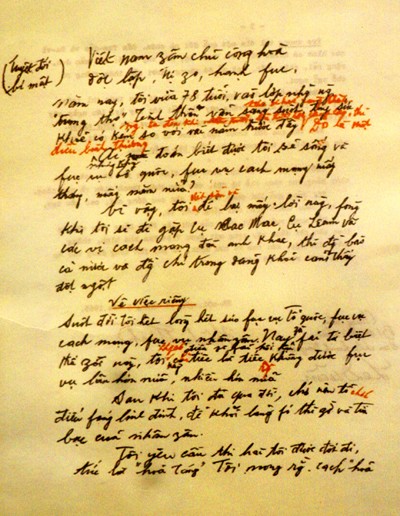 (Tuyệt đối
bí mật)
Việt nam zân chủ cộng hoà
độc lập, tự zo, hạnh fúc.
Năm nay, tôi vừa 78 tuổi, vào lớp những người
"trung thọ". Tinh thần vẫn sáng suốt, thân thể
khoẻ có kém so với vài năm trước đây
điều bình thường
toán biết được tôi sẽ sống và
fục vụ tổ quốc, fục vụ cách mạng mấy
tháng, mấy năm nữa?
Vì vậy, tôi để lại mấy lời này, fòng
khi tôi sẽ đi gặp cụ Các Mác, cụ Lênin và
các vị cách mạng đàn anh khác, thì đồng bào
cả nước và đồng chí trong đảng khỏi cảm thấy
đột ngột
Về việc riêng
Suốt đời tôi hết lòng hết sức fục vụ Tổ quốc, fục vụ
cách mạng, fục vụ nhân zân. Nay zù fải từ biệt
thế zới này, tôi không có điều gì fải hối hận
chỉ tiếc là tiếc không được fục
vụ lâu hơn nữa, nhiều hơn nữa
Sau khi tôi đã qua đời, chớ nên tổ chức
điếu fúng linh đình, để khỏi lãng fí thì zờ và tiền
bạc của nhân zân.
Tôi yêu cầu thi hài tôi được đốt đi,
tức là "hoả táng". Tôi mong rằng cách "hoả